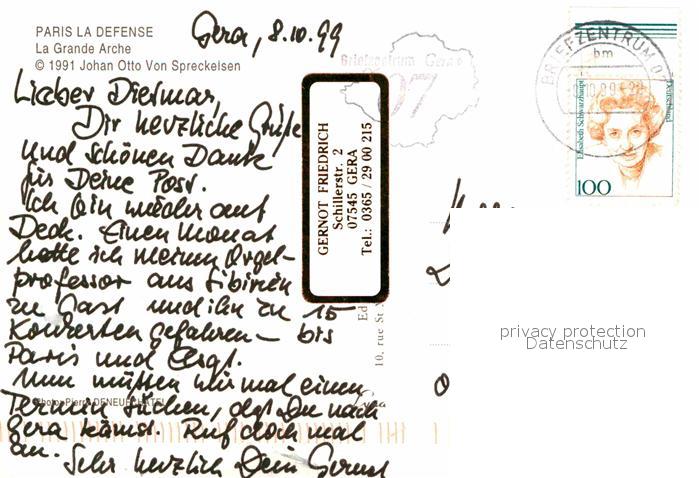 PARIS LA DEFENSE
La Grande Arche
© 1991 Johan Otto Von Spreckelsen
Gera, 8.10.99
Lieber Dietmar,
Dir herzliche Grüße
und schönen Dank
für Deine Post.
Ich bin wieder auf
Deck. Einen Monat
hatte ich meinen Orgel-
professor aus Sibirien
zu Gast und ihn zu 15
Konzerten gefahren - bis
Paris und
Nun müssen wir mal einen
Termin suchen, daß Du nach
Gera kämst. Ruf doch mal
an.
Sehr herzlich Dein Gernot
Photo Pierre DENEUFCHATEL
GERNOT FRIEDRICH
Schillerstr. 2
07545 GERA
Tel.: 0365 / 29 00 215
Briefzentrum Gera
07
BRIEFZENTRUM 07
bm
Elisabeth Schwarzhaupt
Deutschland
100
10, rue St
privacy protection
Datenschutz